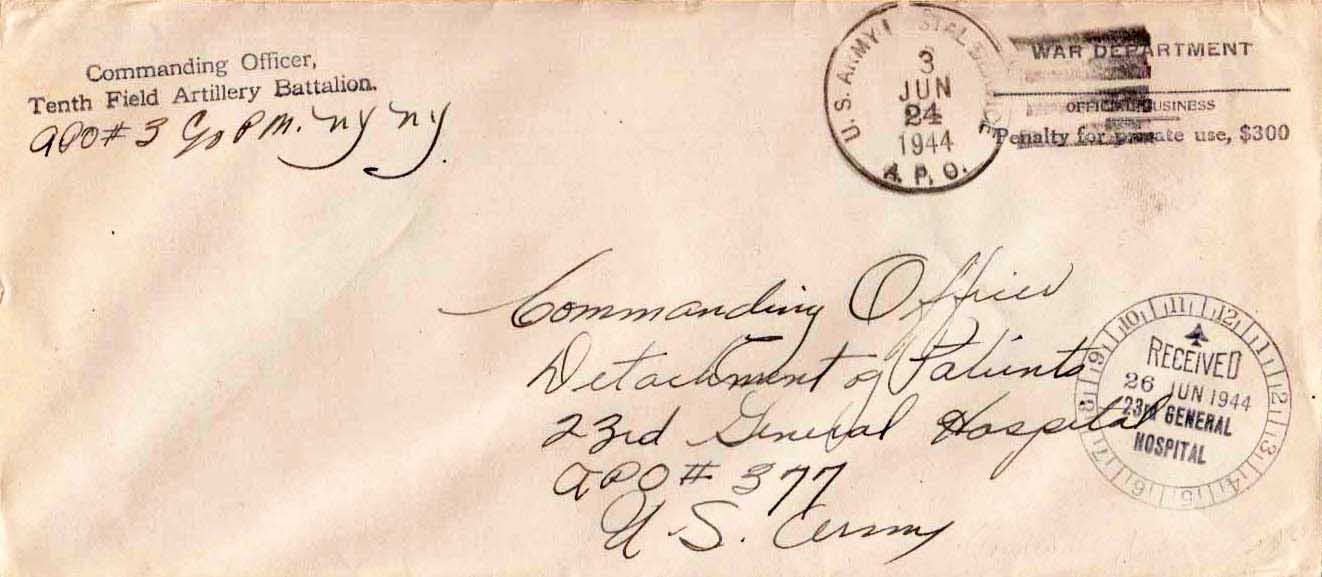 Commanding Officer,
Tenth Field Artillery Battalion.
APO # 3 c/o P M. NY NY.
U. S. ARMY
3
JUN
24
1944
A. P. O.
WAR DEPARTMENT
OFFICIAL BUSINESS
Penalty for private use, $300
Commanding Officer
Detachment of Patients
23rd General Hospital
APO # 377
U S. Army
11 12 1 2 3 4 5 6 7 8 9 10
RECEIVED
26 JUN 1944
23rd GENERAL
HOSPITAL